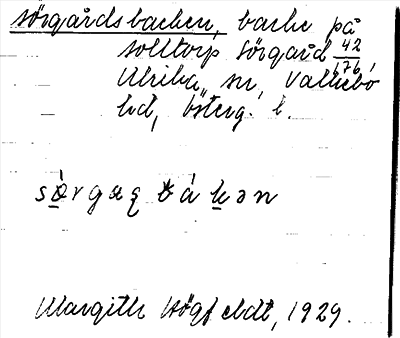 Sörgårdsbacken, backe på
Solltorp Sörgård 42/176
Ulrika sn, Valkebo
hd, Österg. l.
Margith Högfeldt, 1929.